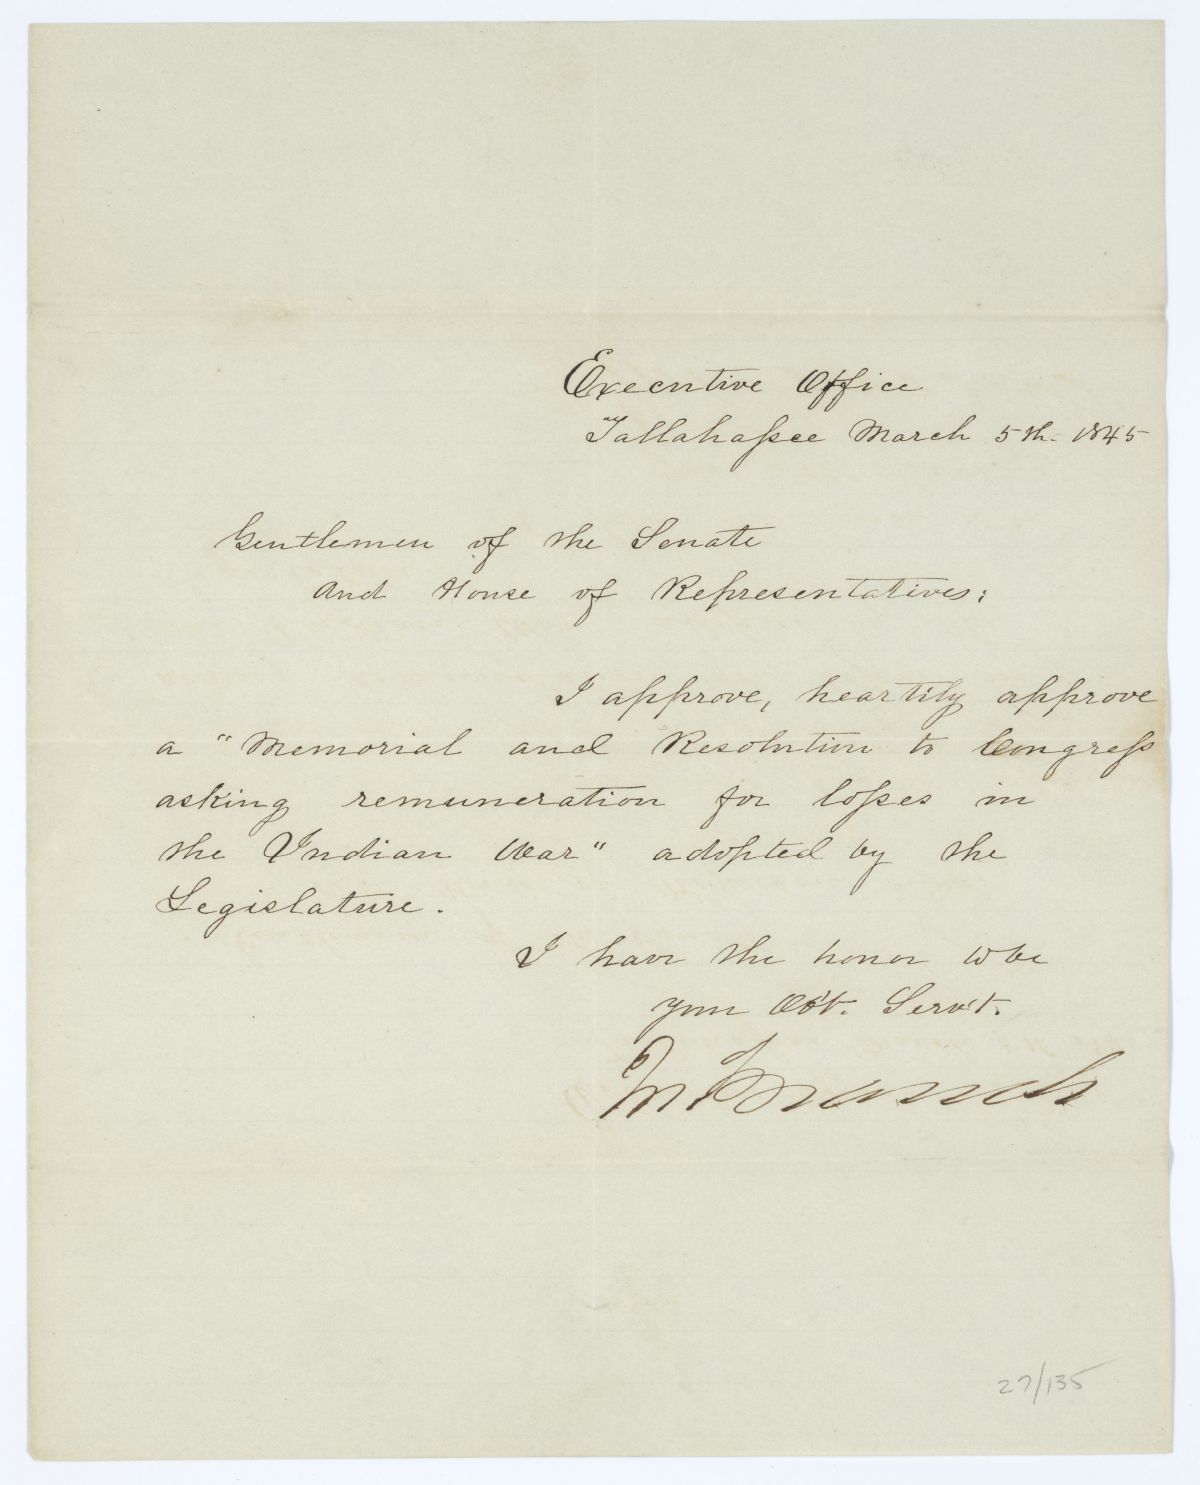 Executive Office
Tallahassee March 5th. 1845
Gentlemen of the Senate
and House of Representatives:
I approve, heartily approve
a "Memorial and Resolution to Congress
asking remuneration for losses in
the Indian War" adopted by the
Legislature.
I have the honor to be
your Ob't. Serv't.
Jn Branch
27/135